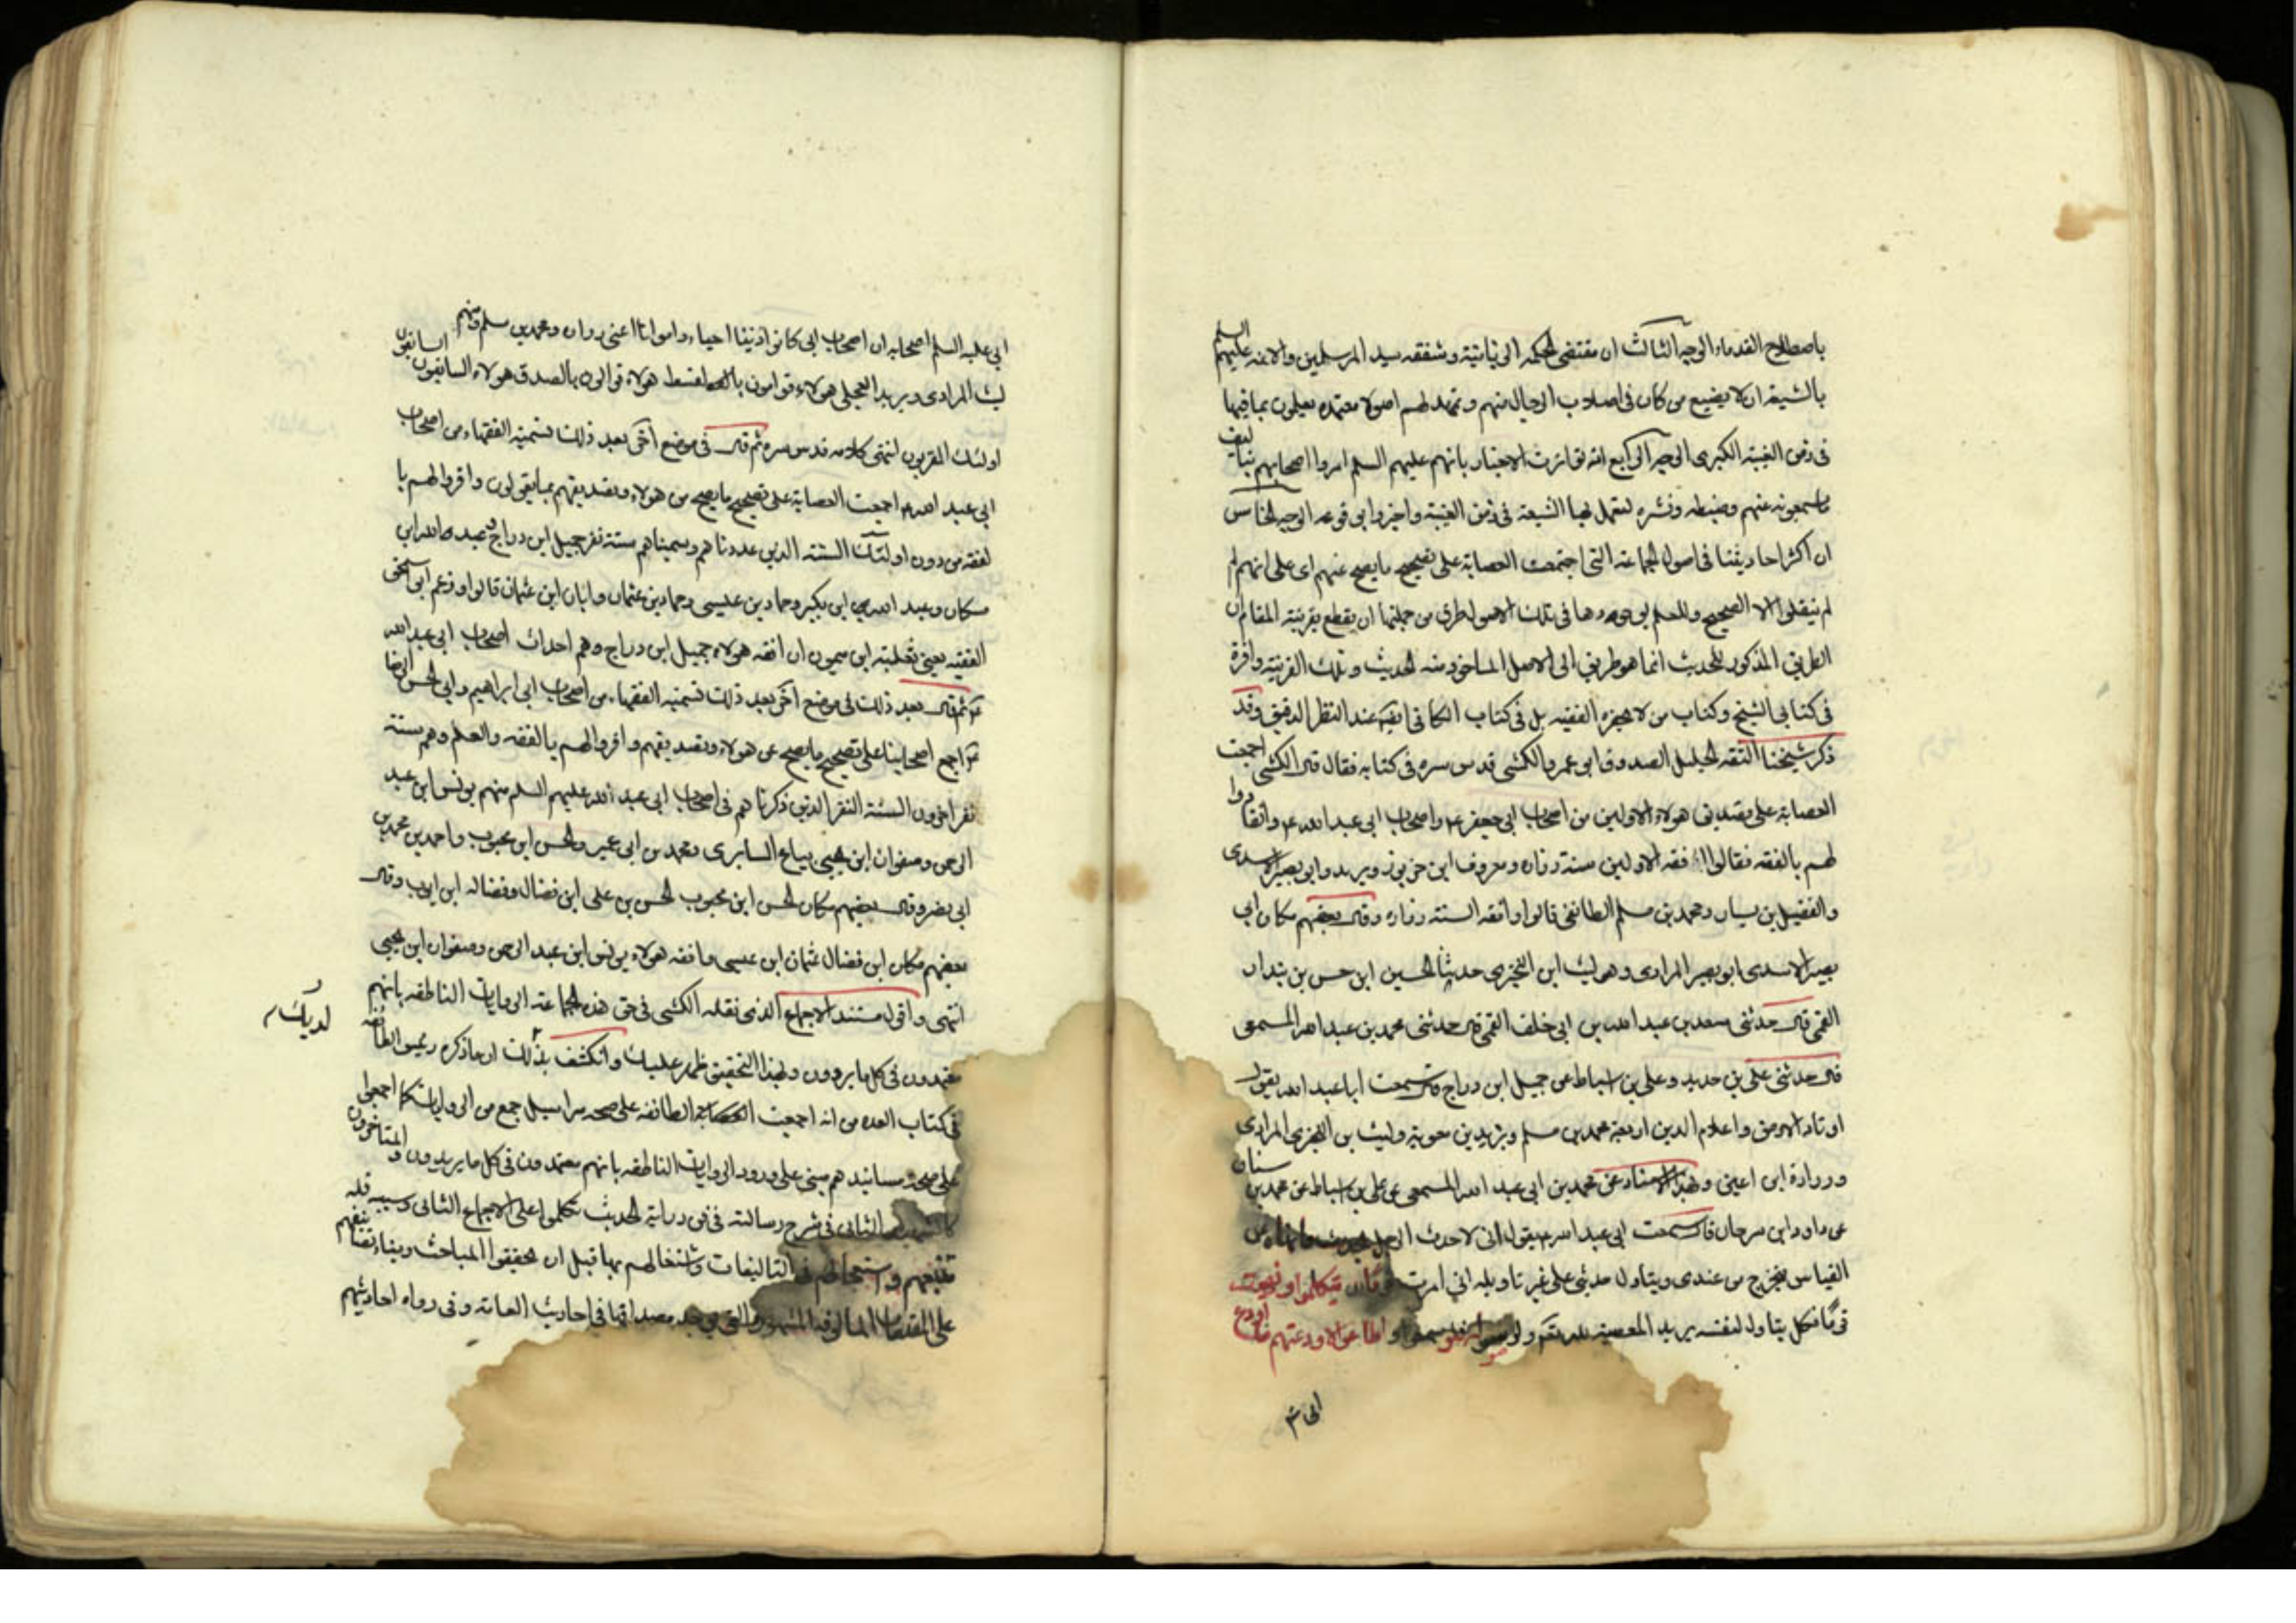 باصطلاح القدماء الوجه الثالث ان مقتضى الحكمة الربانية وشفقه سيد المرسلين والائمه عليهم السلم
بالشيعة ان لا يضيع من كان في اصلاب الرجال منهم وتمهد لهم اصولا معتمده يعملون بما فيها
في زمن الغيبة الكبرى الوجه الرابع انه تواترت الاخبار بانهم عليهم السلم امروا اصحابهم بتاليف
ما سمعونه عنهم وضبطه ونشره لتعمل بها الشيعة في زمن الغيبة واخبروا بوقوعه الوجه الخامس
ان اكثر احاديثنا في اصول الجماعة التي اجتمعت العصابة على تصحيح ما يصح عنهم اى على انهم لم
لم ينقلوا الا الصحيح وللعلم بوجودها في تلك الاصول طرق من جملتها ان يقطع بقرينة المقام ان
الطريق المذكور للحديث انما هو طريق الى الاصل الماخوذ منه الحديث وتلك القرينة وافرة
في كتابى الشيخ وكتاب من لا يحضره الفقيه بل في كتاب الكافى ايضا عند النظر الدقيق وقد
ذكر شيخنا الثقه الجليل الصدوق ابو عمرو الكشى قدس سره في كتابه فقال قال الكشى اجمعت
العصابة على تصديق هولاء الاولين من اصحاب ابى جعفر ع واصحاب ابى عبد الله ع وانقادوا
لهم بالفقه فقالوا افقه الاولين ستة زراره ومعروف ابن خربوذ وبريد وابو بصير الاسدى
والفضيل بن يسار ومحمد بن مسلم الطائفى قالوا وافقه الستة زراره وقال بعضهم مكان ابى
بصير الاسدى ابو بصير المرادى وهو ليث ابن البخترى حدثنا الحسين ابن حسن بن بندار
القمى قال حدثنى سعد بن عبد الله بن ابى خلف القمى قال حدثنى محمد بن عبد الله المسمعى
قال حدثنى على بن حديد وعلى بن اسباط عن جميل ابن دراج قال سمعت ابا عبد الله يقول
اوتاد الارض واعلام الدين اربعة محمد بن مسلم وبريد بن معوية وليث بن البخترى المرادى
وزرارة ابن اعين وبهذا الاسناد عن محمد بن ابى عبد الله المسمعى عن على بن اسباط عن محمد بن سنان
عن داود ابن سرحان قال سمعت ابى عبد الله ع يقول انى لاحدث الرجل بحديث وانهاه عن
القياس فيخرج من عندى ويتاول حديثى على غير تاويله انى امرت قوما ان يتكلموا ونهيت
قوما فكل يتاول لنفسه يريد المعصية لله تعالى ولرسوله فلو سمعوا واطاعوا لاودعتهم ما اودع
ابى ع
ابى عليه السلم اصحابه ان اصحاب ابى كانوا زينا احياء وامواتا اعنى زراره ومحمد بن مسلم ومنهم
ليث المرادى وبريد العجلى هولاء قوامون بالقسط هولاء قوالون بالصدق هولاء السابقون السابقون
اولئك المقربون انتهى كلامه قدس سره ثم قال في موضع آخر بعد ذلك تسمية الفقهاء من اصحاب
ابى عبد الله ع اجمعت العصابة على تصحيح ما يصح من هولاء وتصديقهم بما يقولون واقروا لهم با
لفقه من دون اولئك الستة الذين عددناهم وسميناهم ستة نفر جميل ابن دراج وعبد الله ابن
مسكان وعبد الله ابن بكير وحماد بن عيسى وحماد بن عثمان وابان ابن عثمان قالوا وزعم ابى اسحق
الفقيه يعنى ثعلبة ابن ميمون ان افقه هولاء جميل ابن دراج وهم احداث اصحاب ابى عبد الله
ع ثم قال بعد ذلك في موضع آخر بعد ذلك تسمية الفقهاء من اصحاب ابى ابراهيم وابى الحسن الرضا
ع اجمع اصحابنا على تصحيح ما يصح عن هولاء وتصديقهم واقروا لهم بالفقه والعلم وهم ستة
نفر اخر دون الستة النفر الذين ذكرناهم في اصحاب ابى عبد الله عليهم السلم منهم يونس ابن عبد
الرحمن وصفوان ابن يحيى بياع السابرى ومحمد بن ابى عمير والحسن ابن محبوب واحمد بن محمد بن
ابى نصر وقال بعضهم مكان الحسن ابن محبوب الحسن بن على ابن فضال وفضاله ابن ايوب وقال
بعضهم مكان ابن فضال عثمان ابن عيسى وافقه هولاء يونس ابن عبد الرحمن وصفوان ابن يحيى
انتهى واقول مستند الاجماع الذى نقله الكشى في حق هذه الجماعة الروايات الناطقه بانهم
معتمدون في كل ما يروون وبهذا التحقيق ظهر عليك وانكشف لديك بذلك ان ما ذكره رئيس الطائفه
في كتاب العده من انه اجمعت الطائفه على صحه مراسيل جمع من الرواة كما اجمعوا
على صحة مسانيدهم مبنى على ورود الروايات الناطقه بانهم معتمدون في كل ما يريدون والمتاخرون
كالشهيد الثانى في شرح رسالته في فن دراية الحديث تكلموا على الاجماع الثانى وسببه قله
تتبعهم واستعجالهم في التاليفات واشتغالهم بها قبل ان يحققوا المباحث وبناء تصانيفهم
على المقدمات المالوفه المشهوره التى يوجد مصداقها في احاديث العامة وفى رواه احاديثهم